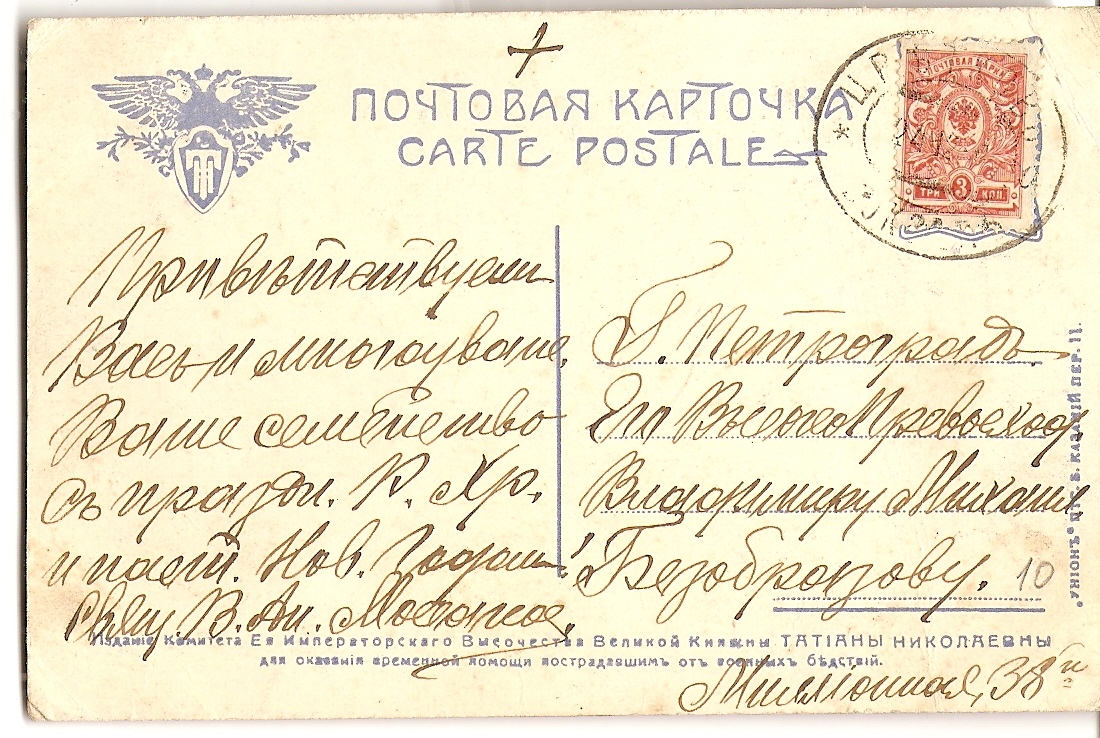 ПОЧТОВАЯ КАРТОЧКА
CARTE POSTALE
ПОЧТОВАЯ МАРКА
ТРИ 3 КОП
Привѣтствуемъ
Васъ и многоуваж.
Ваше семейство
съ праздн. Р. Хр.
и наст. Нов. Годомъ!
В. Ан.
Г. Петроградъ
Его Высокопревосход
Владимиру Михаил
Безобразову.
10
38
Изданіе Комитета Ея Императорскаго Высочества Великой Княжны ТАТІАНЫ НИКОЛАЕВНЫ
для оказанія временной помощи пострадавшимъ отъ военныхъ бѣдствій.
"УНІОНЪ" ПТГ. Б. КАЗАЧІЙ ПЕР. 11.